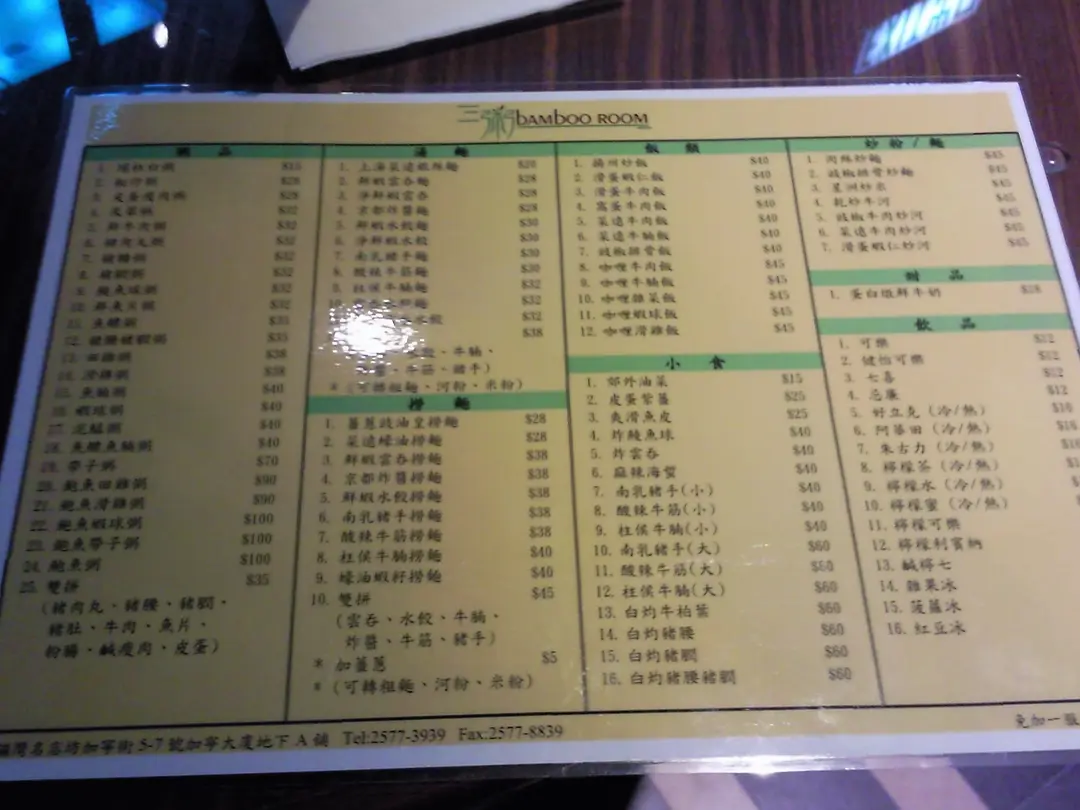 三粥 BAMBOO ROOM
粥 品
1. 瑤柱白粥 $15
$28
3. 皮蛋瘦肉粥 $28
4. 皮蛋粥 $32
5. 鮮牛肉粥 $32
6. 豬肉丸粥 $32
$32
$32
9. 鮑魚球粥 $32
$32
11. 魚鰾粥 $35
$35
13. 田雞粥 $38
14. 滑雞粥 $38
15. 魚腩粥 $40
16. 蝦球粥 $40
17. 泥鯭粥 $40
18. 魚鰾魚腩粥 $40
19. 帶子粥 $70
20. 鮑魚田雞粥 $90
21. 鮑魚滑雞粥 $90
22. 鮑魚蝦球粥 $100
23. 鮑魚帶子粥 $100
24. 鮑魚粥 $100
25. 雙拼 $35
(豬肉丸、豬腰、豬膶、
豬肚、牛肉、魚片、
粉腸、鹹瘦肉、皮蛋)
湯 麵
1. 上海菜遠雞絲麵 $28
2. 鮮蝦雲吞麵 $28
3. 淨鮮蝦雲吞 $28
4. 京都炸醬麵 $28
5. 鮮蝦水餃麵 $30
6. 淨鮮蝦水餃 $30
7. 南乳豬手麵 $30
8. 酸辣牛筋麵 $32
9. 柱侯牛腩麵 $32
$32
水餃 $38
水餃、牛腩、
、牛筋、豬手)
* (可轉粗麵、河粉、米粉)
撈 麵
1. 薑蔥豉油皇撈麵 $28
2. 菜遠蠔油撈麵 $28
3. 鮮蝦雲吞撈麵 $38
4. 京都炸醬撈麵 $38
5. 鮮蝦水餃撈麵 $38
6. 南乳豬手撈麵 $38
7. 酸辣牛筋撈麵 $38
8. 柱侯牛腩撈麵 $40
9. 蠔油蝦籽撈麵 $40
10. 雙拼 $45
(雲吞、水餃、牛腩、
炸醬、牛筋、豬手)
* 加薑蔥 $5
* (可轉粗麵、河粉、米粉)
飯 類
1. 揚州炒飯 $40
2. 滑蛋蝦仁飯 $40
3. 滑蛋牛肉飯 $40
4. 窩蛋牛肉飯 $40
5. 菜遠牛肉飯 $40
6. 菜遠牛腩飯 $40
7. 豉椒排骨飯 $40
8. 咖喱牛肉飯 $45
9. 咖喱牛腩飯 $45
10. 咖喱雜菜飯 $45
11. 咖喱蝦球飯 $45
12. 咖喱滑雞飯 $45
小 食
1. 郊外油菜 $15
2. 皮蛋紫薑 $25
3. 爽滑魚皮 $25
4. 炸鯪魚球 $40
5. 炸雲吞 $40
6. 麻辣海蜇 $40
7. 南乳豬手(小) $40
8. 酸辣牛筋(小) $40
9. 柱侯牛腩(小) $40
10. 南乳豬手(大) $60
11. 酸辣牛筋(大) $60
12. 柱侯牛腩(大) $60
13. 白灼牛柏葉 $60
14. 白灼豬腰 $60
15. 白灼豬膶 $60
16. 白灼豬腰豬膶 $60
炒 粉 / 麵
1. 肉絲炒麵 $45
2. 豉椒排骨炒麵 $45
3. 星洲炒米 $45
4. 乾炒牛河 $45
5. 豉椒牛肉炒河 $45
6. 菜遠牛肉炒河 $45
7. 滑蛋蝦仁炒河 $45
甜 品
1. 蛋白燉鮮牛奶 $28
飲 品
1. 可樂 $12
2. 健怡可樂 $12
3. 七喜 $12
4. 忌廉 $12
5. 好立克 (冷/熱) $16
6. 阿華田 (冷/熱) $16
7. 朱古力 (冷/熱)
8. 檸檬茶 (冷/熱)
9. 檸檬水 (冷/熱)
10. 檸檬蜜 (冷/熱)
11. 檸檬可樂
12. 檸檬利賓納
13. 鹹檸七
14. 雜果冰
15. 菠蘿冰
16. 紅豆冰
鑼灣名店坊加寧街 5-7 號加寧大廈地下 A 鋪 Tel:2577-3939 Fax:2577-8839
免加一服